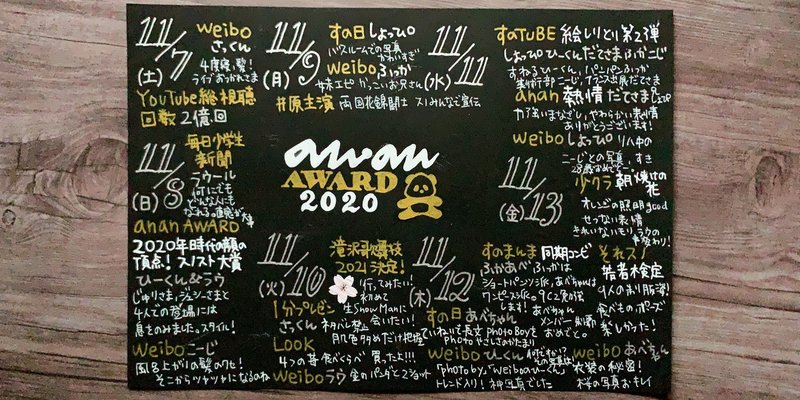 11/7
(土)
weibo
さっくん
4度寝、髪!
ライブおつかれさま
YouTube総視聴
回数2億回
11/8
(日)
毎日小学生
新聞
ラウール
何にでも
どんな人にも
なれる
anan AWARD
2020年時代の顔の
頂点! スノスト大賞
ひーくん&ラウ
じゅりさま、ジェシーさまと
4人での登場には
息をのみました、スタイル!
Weiboこーじ
風呂上がりの髪のクセ!
そこからツヤツヤになるのね
11/9
(月)
すの日 しょっぴ
バスルームでの写真
かわいすぎ
Weiboふっか
妹エピ かっこいいお兄さん
#原主演 両国花錦闘士 スノみんなで宣伝
anan
AWARD
2020
11/10
(火)
滝沢歌舞伎
2021決定!
行ってみたい!
初めて
生SnowManに
会いたい!
1分プレゼン
さっくん
ネタバレ祭
肌色多めだけ把握
LOOK
4つの丼食べくらべ 買ったよ!!!
weiboラウ 金のパンダと2ショット
11/11
(水)
すのTUBE 絵しりとり第2弾
しょっぴ ひーくん だてさま ふか こじ
すねるひーくん、
anan 熱情 だてさま
力強いまなざし、やわらかい表情
ありがとうございます!
weibo しょっぴ リハ中の
こーじとの写真、すき
11/12
(木)
すのまんま 同期コンビ
ふかあべ ふっかは
ショートパンツ派、あべちゃんは
ワンピース派
します! あべちゃん
メンバー
おめでとう。
すの日 あべちゃん
ていねいで長文 Photo Boyを
Photoやさしさのかたまり
weibo ひーくん
「photo by」「weiboのひーくん」
トレンド入り! 神写真でした
11/13
(金)
少クラ 朝焼けの
花
オレンジの照明good
せつない表情
きれいなハモリ、ラウの
それスノ
若者検定
9人のお引越し
食べものポーズ
楽しかった!
weibo あべちゃん
衣装の秘密!
桜の写真おキレイ